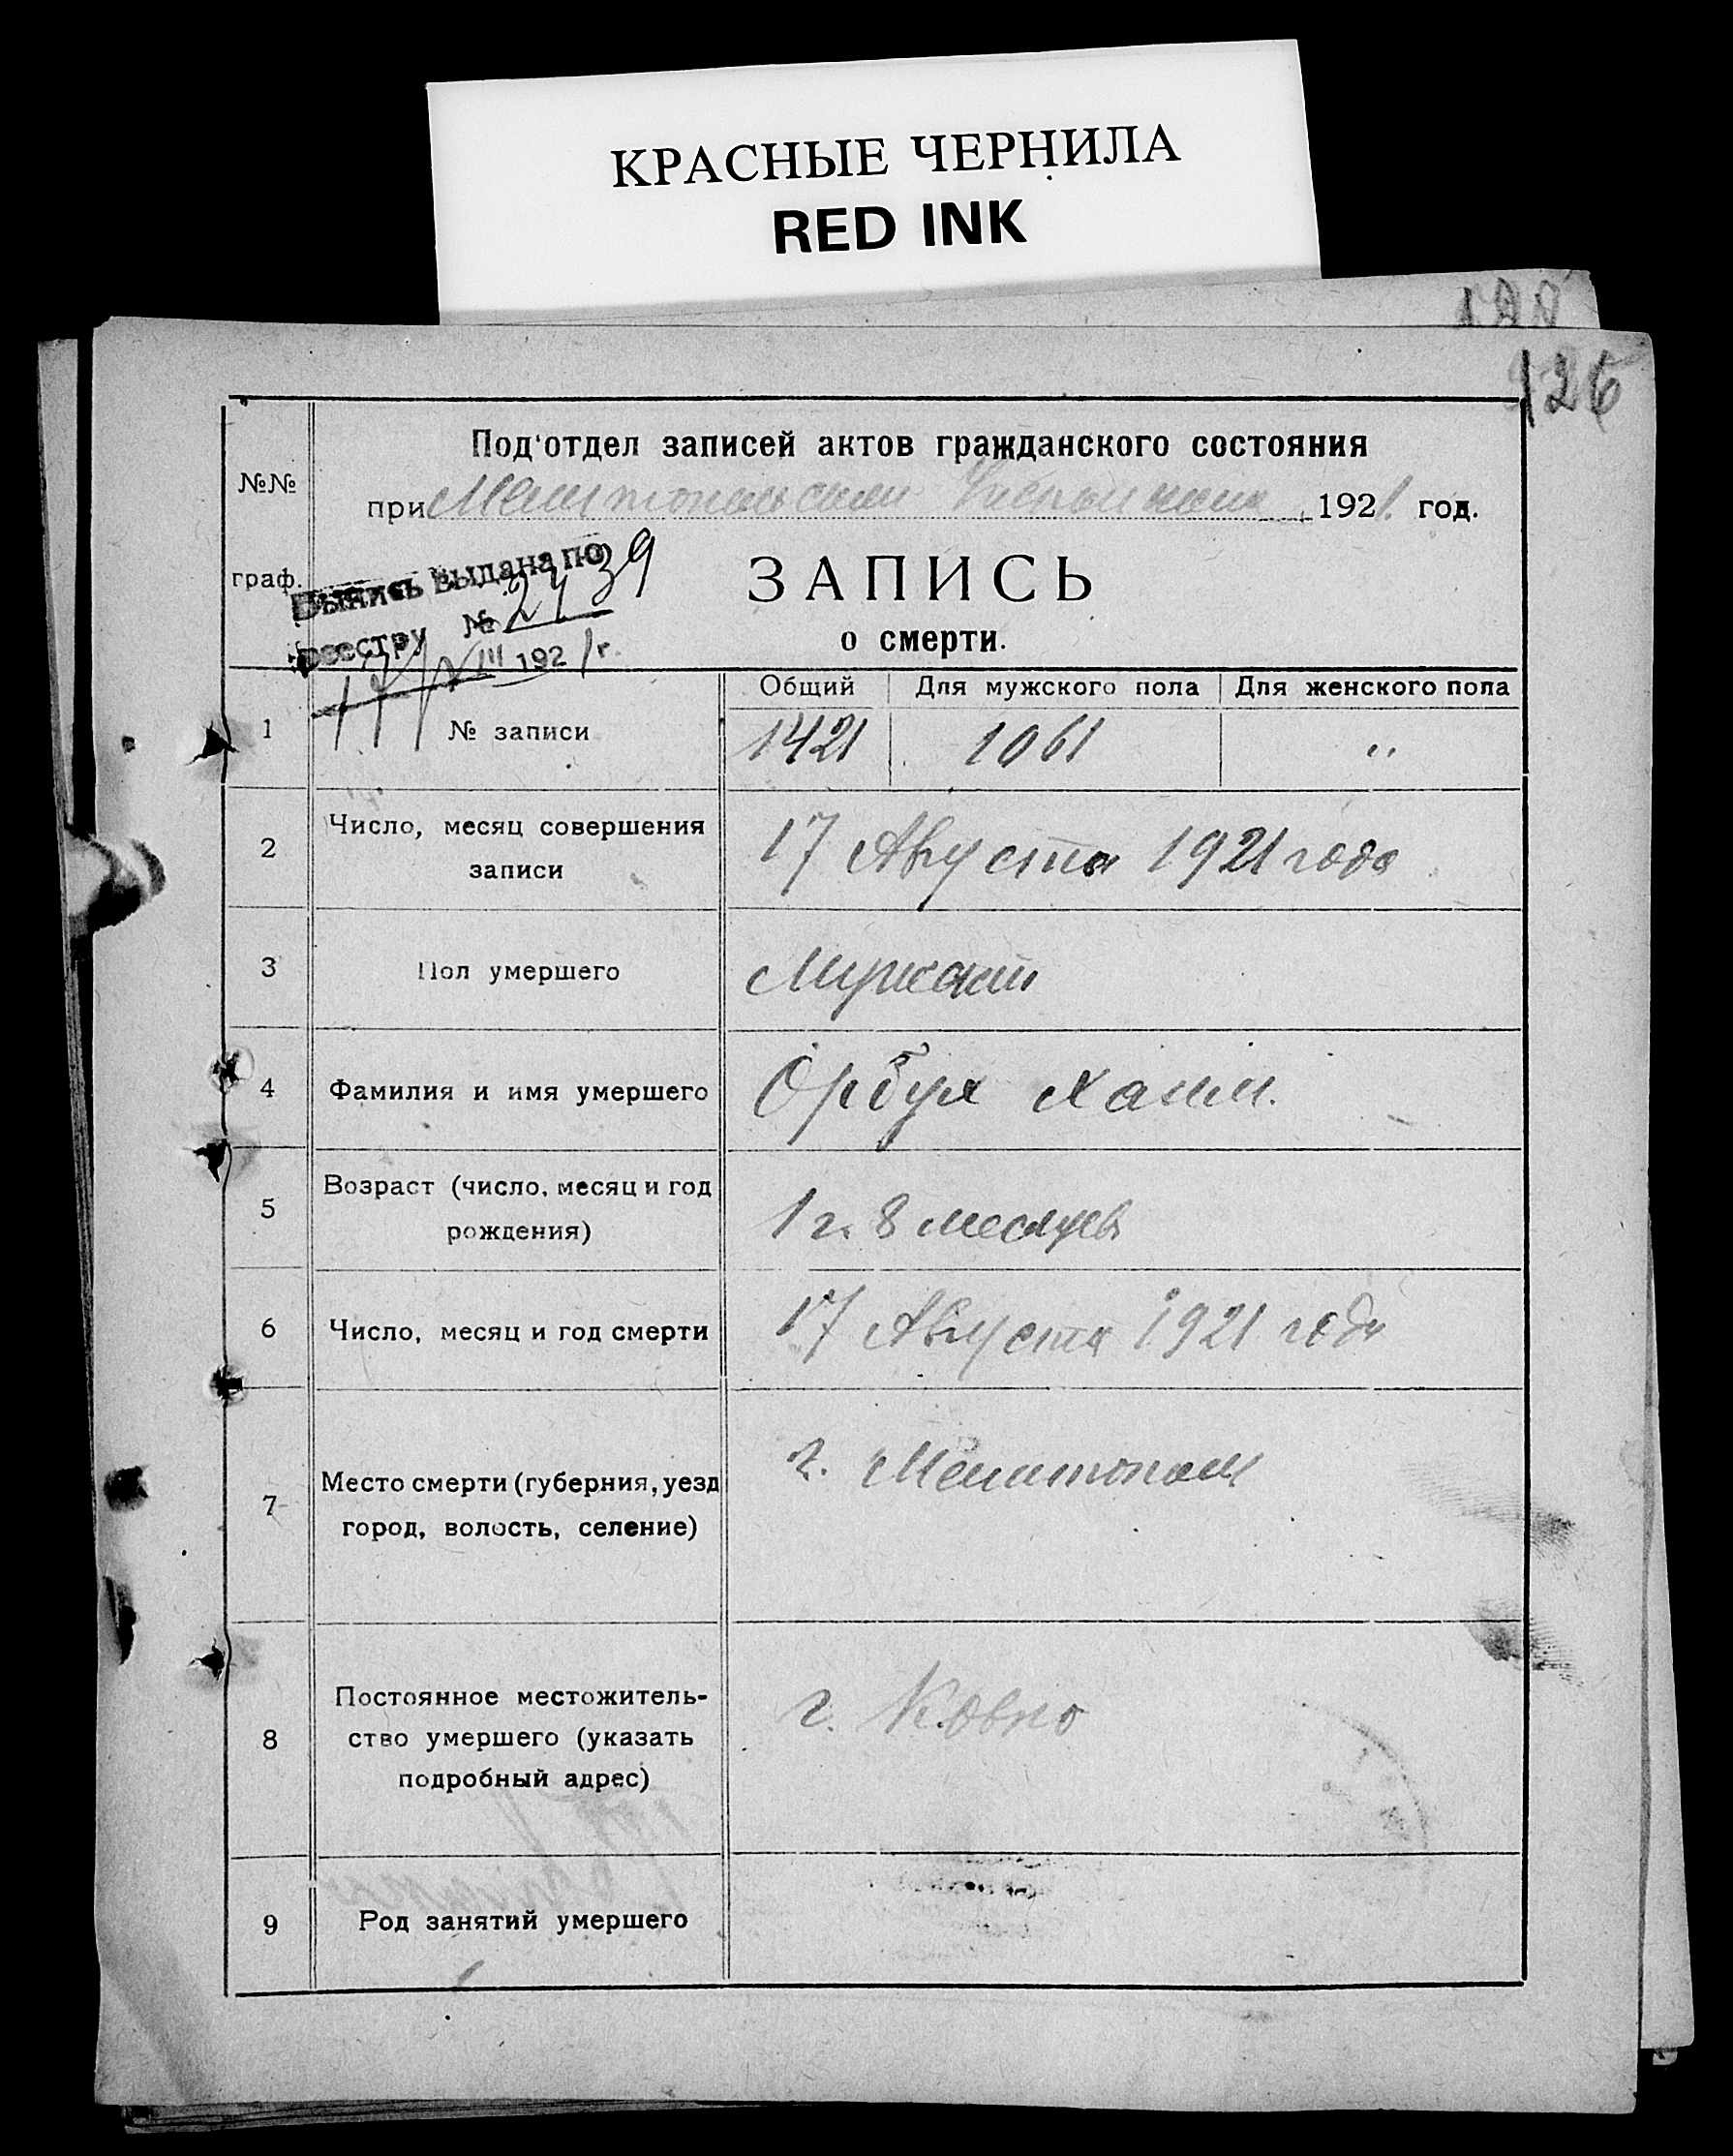 КРАСНЫЕ ЧЕРНИЛА
RED INK
126
№№
граф.
Под'отдел записей актов гражданского состояния
при Мелитопольском 1921 год.
Выпись выдана по
реестру № 2439
17/VIII 1921 г.
ЗАПИСЬ
о смерти.
Общий Для мужского пола Для женского пола
1 № записи 1421 1061 "
2 Число, месяц совершения
записи
17 Августа 1921 года
3 Пол умершего Мужской
4 Фамилия и имя умершего Орбух Хаим.
5 Возраст (число, месяц и год
рождения)
1 г. 8 месяцев
6 Число, месяц и год смерти 17 Августа 1921 года
7 Место смерти (губерния, уезд
город, волость, селение)
г. Мелитополь
8 Постоянное местожитель-
ство умершего (указать
подробный адрес)
г. Ковно
9 Род занятий умершего